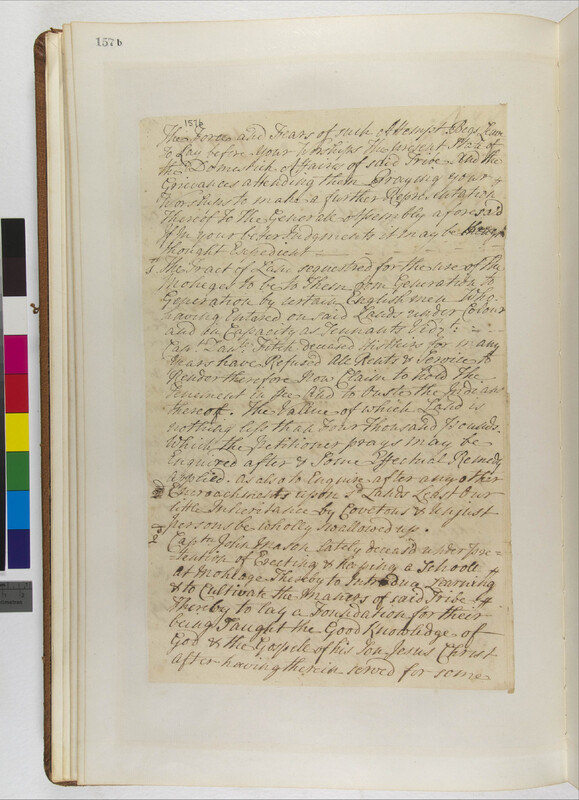 157b
157b
The Force and Fears of such Attempt Begs Leave
to Lay before Your Worships the present State of
the Domestick Affaires of said Tribe And the
Grievances attending them Praying your
Worships to make a further Representation
Thereof to the Generale Assembly aforesaid
If in your better Judgments it may be
thought Expedient
The Tract of Land sequestred for the use of the
Moheges to be to Them from Generation to
Generation by certain English men Who
having Entered on said Lands under Colour
and in Capacity as Tennants
Capt Danll Fitch deceased his Heirs for many
Years have Refused All Rents & Service to
Render therefore Now Claim to hold The
Tenement in fee And to Ouster the Indians
thereof. The Vallue of which Land is
nothing less than Four Thousand pounds.
Which the Petitioner prays may be
Enquired after & Some Effectual Remedy
applied. as also to Enquire after any other
Encroachments upon Sd Lands Least Our
little Inheritance by Covetous & unjust
persons be wholly swallowed up.
Captn John Mason lately deceasd under pre-
-tention of Erecting & keeping a Schoole
at Mohege Thereby to Introduce Learning
& to Cultivate the Maners of said Tribe &
Thereby to lay a Foundation for their
being Taught the Good Knowledge of
God & the Gospele of his Son Jesus Christ
after having therein served for some